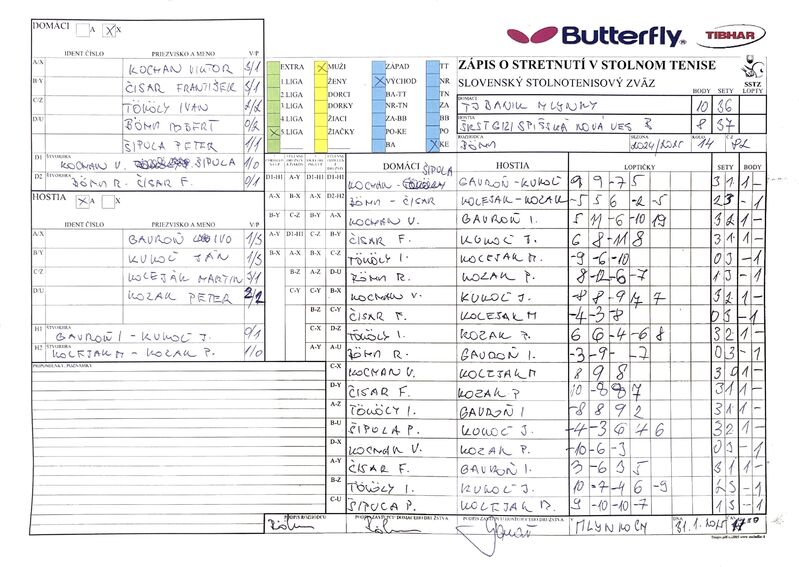 DOMÁCI A X
Butterfly
TIBHAR
IDENT ČÍSLO PRIEZVISKO A MENO V/P
ZÁPIS O STRETNUTÍ V STOLNOM TENISE
SLOVENSKÝ STOLNOTENISOVÝ ZVÄZ
SSTZ
BODY SETY LOPTY
A/X KOCMAN VIKTOR 3/1
B/Y ČISAR FRANTIŠEK 3/1
C/Z TÖKÖLY IVAN 2/2
D/U RÖMM ROBERT 0/2
ŠIPULA PETER 1/1
D1 ŠTVORHRA KOCMAN V. ŠIPULA 1/0
D2 ŠTVORHRA RÖMM R. ČISAR F. 0/1
EXTRA MUŽI ZÁPAD TT
1 LIGA ŽENY VÝCHOD NR
2 LIGA DORCI BA-TT TN
3 LIGA DORKY NR-TN ZA
4 LIGA ŽIACI ZA-BB BB
5 LIGA ŽIAČKY PO-KE PO
BA KE
DOMÁCI TJ BANIK MLYNKY 10 36
HOSTIA ŠKST GIZI SPIŠSKÁ NOVÁ VES B 8 37
ROZHODCA RÖMM 2024/2025 KOLO 14
HOSTIA X A X
IDENT ČÍSLO PRIEZVISKO A MENO V/P
A/X GAVROŇ IVO 1/3
B/Y KUKOĽ JÁN 1/3
C/Z KOLEJÁK MARTIN 3/1
D/U KOZAK PETER 2/2
H1 ŠTVORHRA GAVROŇ I - KUKOĽ J. 0/1
H2 ŠTVORHRA KOLEJAK M - KOZAK P. 1/0
PRIPOMIENKY, POZNÁMKY
DOMÁCI HOSTIA LOPTIČKY SETY BODY
D1-H1 A-Y D1-H1 D1-H1 KOCMAN - ŠIPULA GAVROŇ - KUKOĽ 9 9 -7 5 3 1 1 -
A-X B-X A-X D2-H2 RÖMM - ČISAR KOLEJAK - KOZAK -5 5 6 -2 -5 2 3 - 1
B-Y C-Z B-Y A-X KOCMAN V. GAVROŇ I. 5 11 -6 -10 19 3 2 1 -
A-Y D1-H1 C-Z B-Y ČISAR F. KUKOĽ J. 6 8 -11 8 3 1 1 -
B-X A-X B-X C-Z TÖKÖLY I. KOLEJAK M. -9 -6 -10 0 3 - 1
B-Z A-Z D-U RÖMM R. KOZAK P. 8 -12 -6 -7 1 3 - 1
C-Y C-Y B-X KOCMAN V. KUKOĽ J. -8 8 -9 7 7 3 2 1 -
B-Z C-Y ČISAR F. KOLEJAK M -4 -3 -8 0 3 - 1
C-X D-Z TÖKÖLY I. KOZAK P. 6 6 -4 -6 8 3 2 1 -
A-Y A-U RÖMM R. GAVROŇ I. -3 -9 -7 0 3 - 1
C-X KOCMAN V. KOLEJAK M 8 9 8 3 0 1 -
D-Y ČISAR F. KOZAK P 10 -8 8 7 3 1 1 -
A-Z TÖKÖLY I. GAVROŇ I -8 8 9 2 3 1 1 -
B-U ŠIPULA P. KUKOĽ J. -4 -3 6 4 6 3 2 1 -
D-X KOCMAN V. KOZAK P. -10 -6 -3 0 3 - 1
A-Y ČISAR F. GAVROŇ I. 3 -6 3 5 3 1 1 -
B-Z TÖKÖLY I. KUKOĽ J. 10 -7 -4 6 -9 2 3 - 1
C-U ŠIPULA P. KOLEJAK M. 9 -10 -10 -7 1 3 - 1
PODPIS ROZHODCU PODPIS ZÁSTUPCU DOMÁCEHO DRUŽSTVA PODPIS ZÁSTUPCU HOSŤUJÚCEHO DRUŽSTVA V MLYNKOCH DŇA 31.1.2025